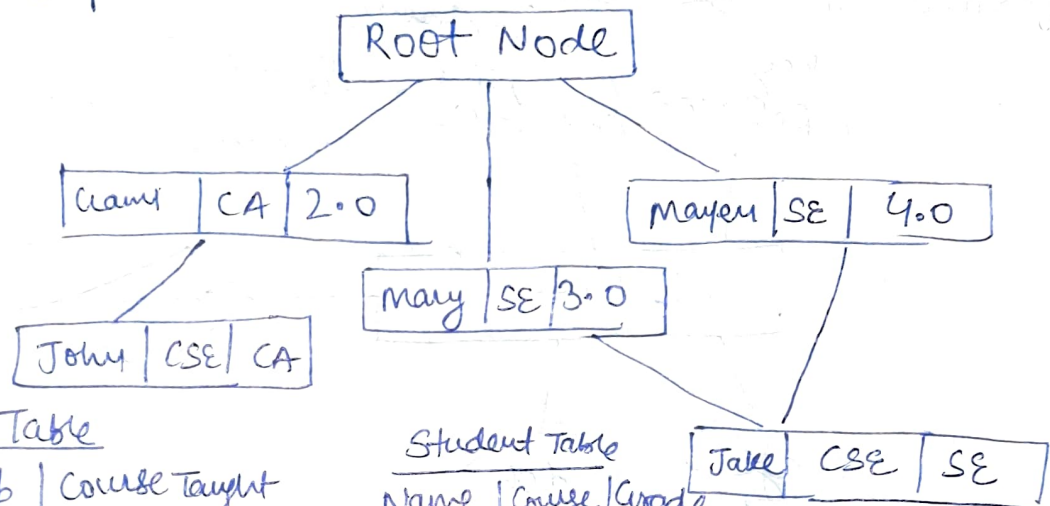 Root Node
CA 2.0
Mayer SE 4.0
Mary SE 3.0
John CSE CA
Table
Student Table
Jake CSE SE
b | Course Taught
Name | Course | Grade